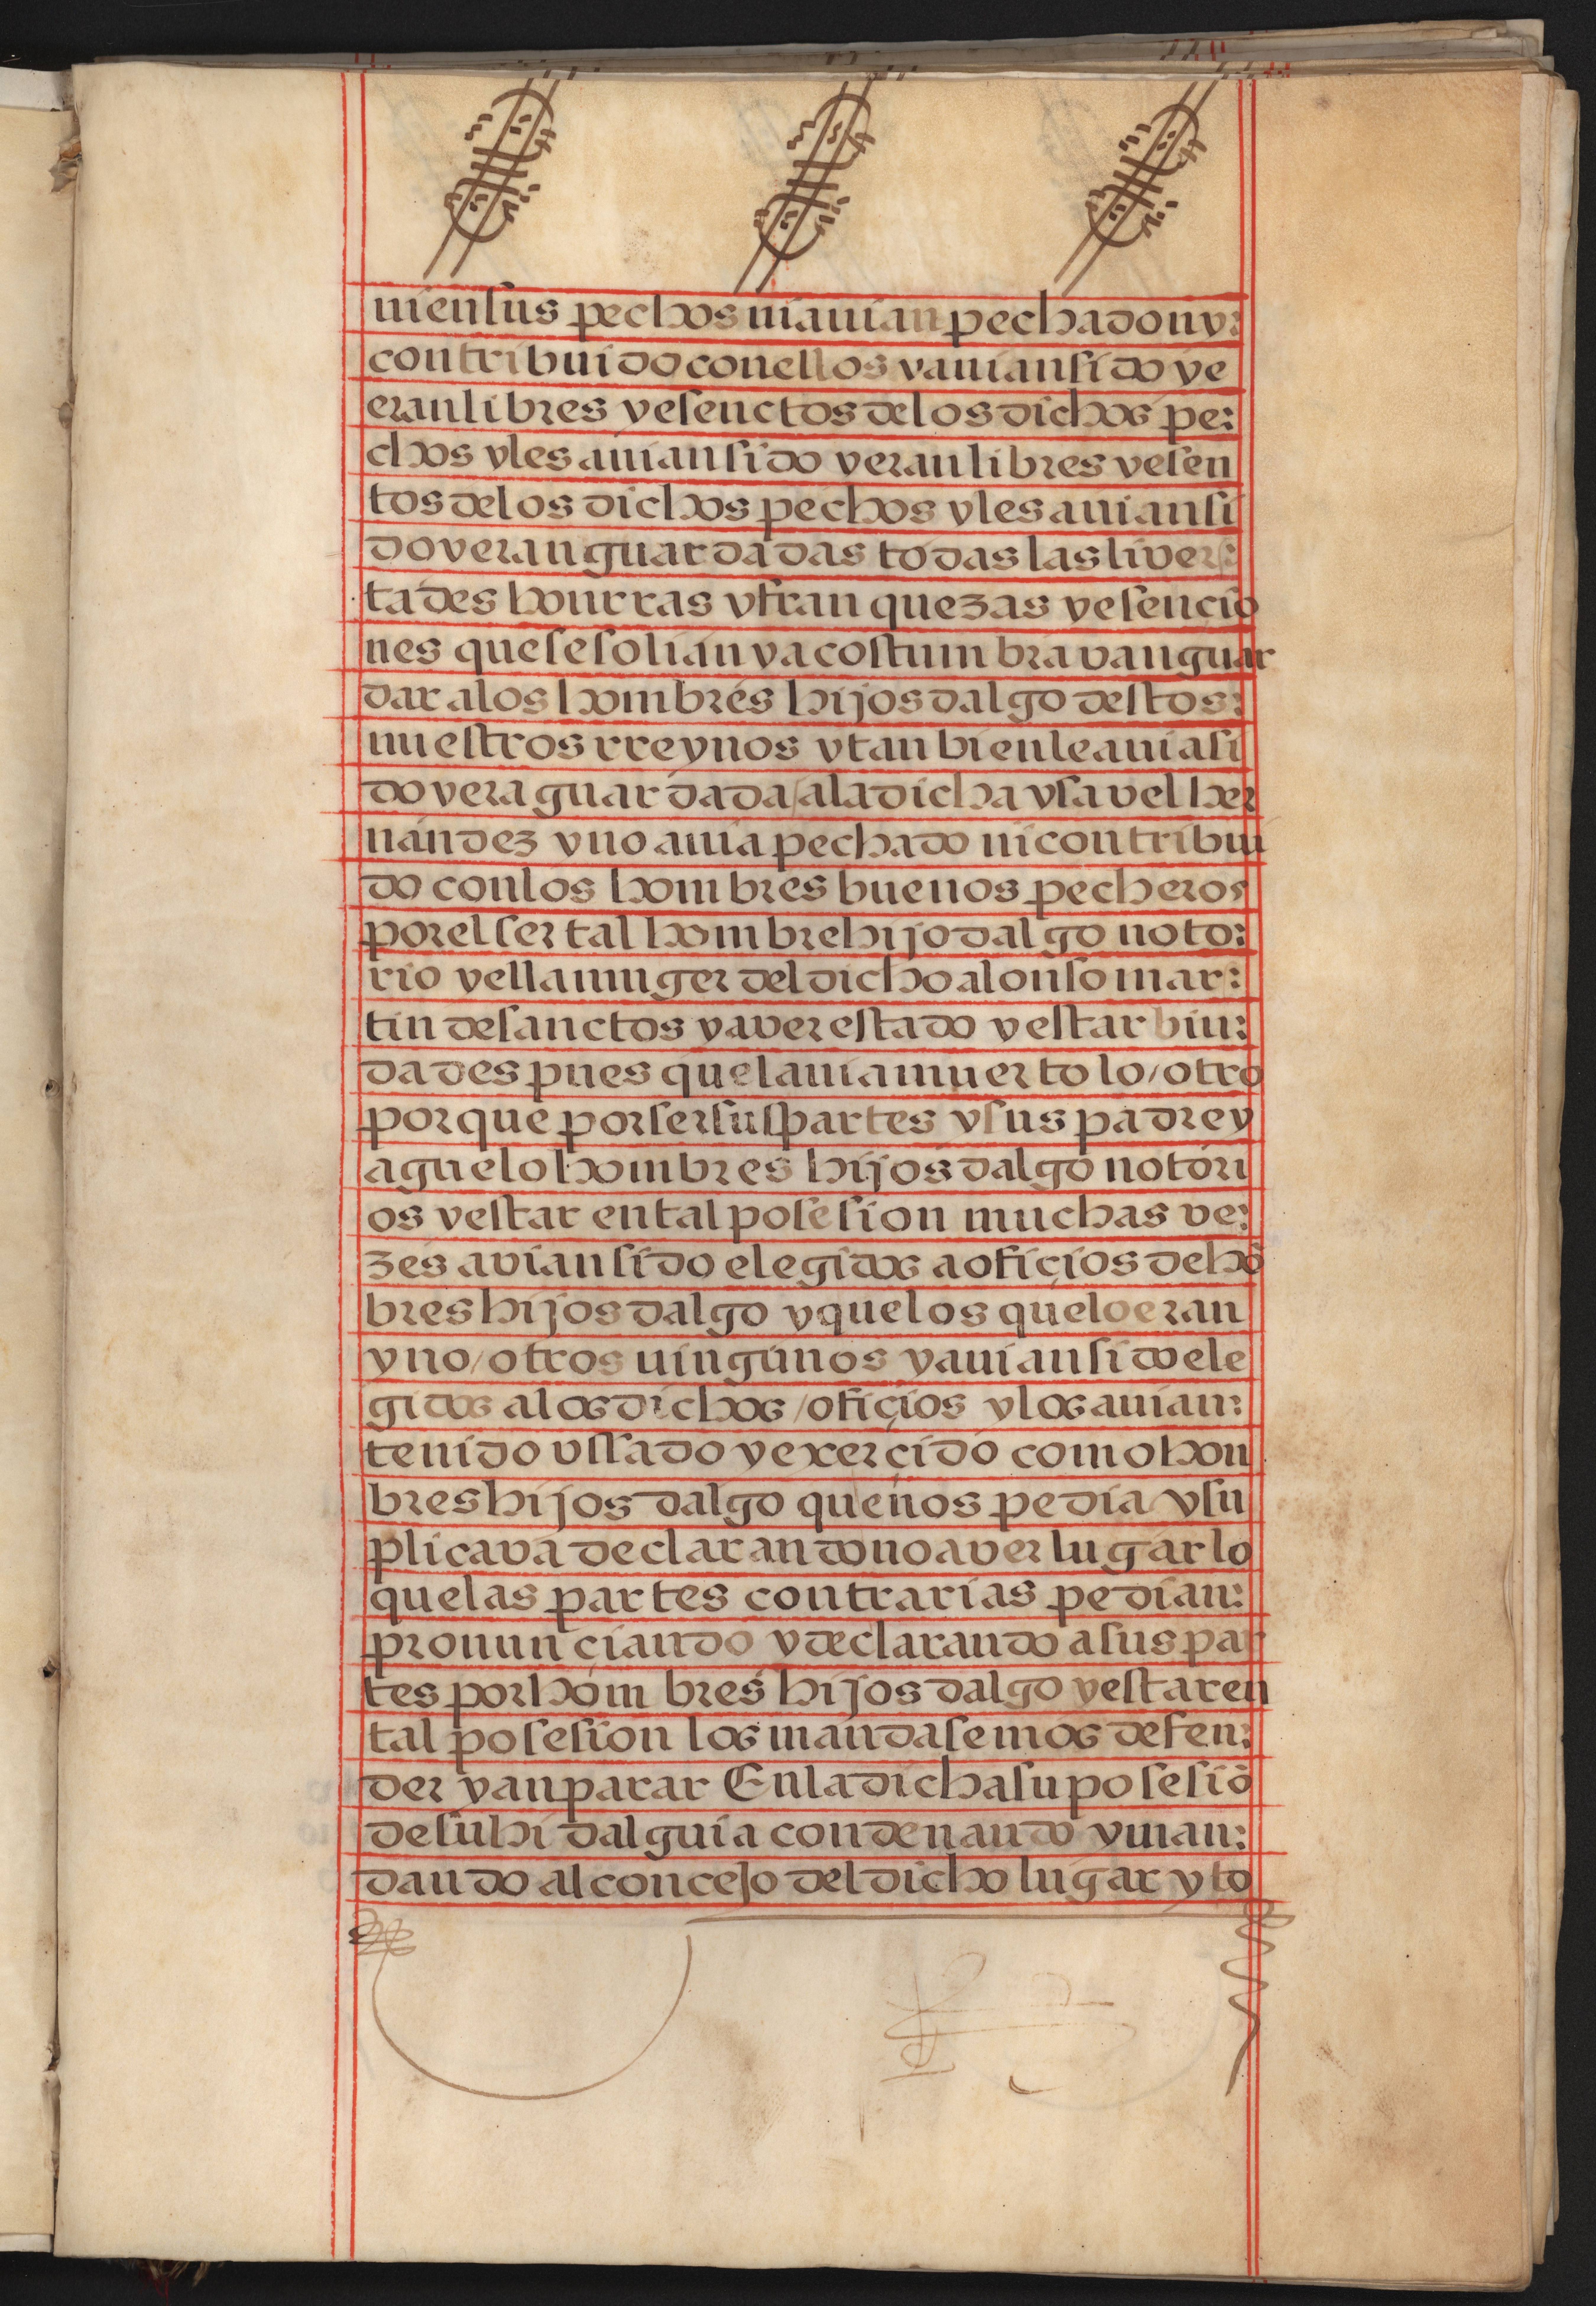 ni en sus pechos ni avian pechado ny:
contribuido con ellos y avian sido ye
eran libres y esenctos de los dichos pe:
chos y les avian sido y eran libres y esen
tos de los dichos pechos y les avian si
do y eran guardadas todas las liver:
tades honrras y franquezas y esencio
nes que se solian y acostumbravan guar
dar a los hombres hijos dalgo destos:
nuestros rreynos y tanbien le avia si
do y era guardada / a la dicha ysavel her
nandez y no avia pechado ni contribui
do con los hombres buenos pecheros
por el ser tal hombre hijo dalgo noto:
rio y ella muger del dicho alonso mar:
tin de sanctos y aver estado y estar biu:
da despues quel avia muerto lo / otro
por que por ser sus partes y sus padre y
aguelo hombres hijos dalgo notori
os y estar en tal posesion muchas ve:
zes avian sido elegidos a ofiçios de hõ
bres hijos dalgo y que los que lo eran
y no / otros ningunos y avian sido ele
gidos a los dichos / ofiçios y los avian:
tenido ussado y exerçido como hon
bres hijos dalgo que nos pedia y su
plicava declarando no aver lugar lo
que las partes contrarias pedian:
pronunçiando y declarando a sus par
tes por hombres hijos dalgo y estar en
tal posesion los mandasemos defen:
der y anparar En la dicha su posesiõ
de su hidalguia condenando y man:
dando al concejo del dicho lugar y to